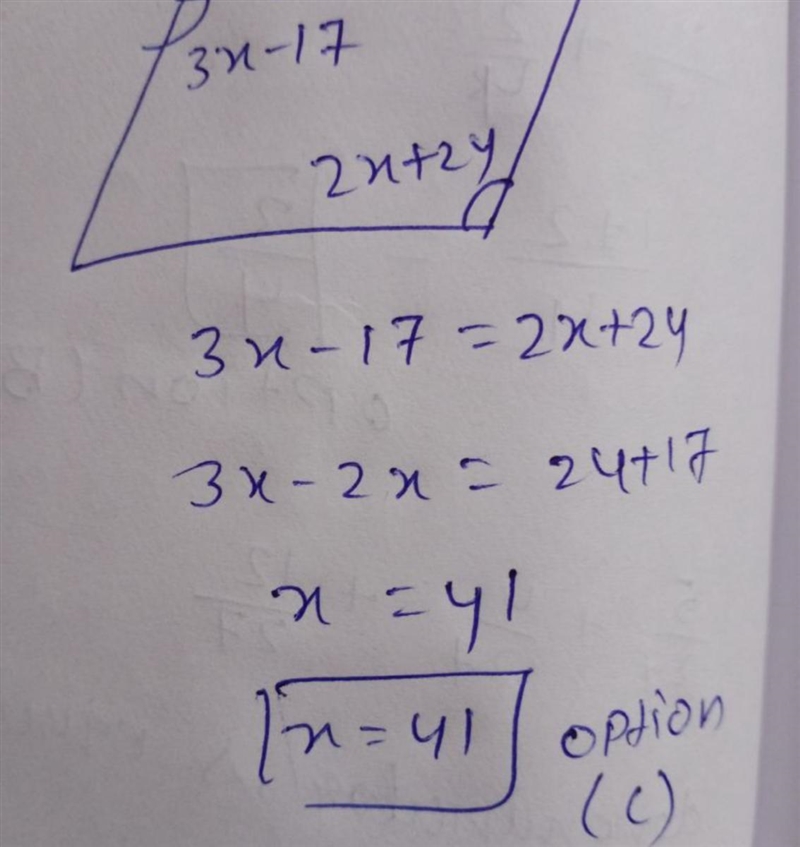 3x-17
2x+24
3x-17=2x+24
3x-2x=24+17
x=41
x=41 option
(C)